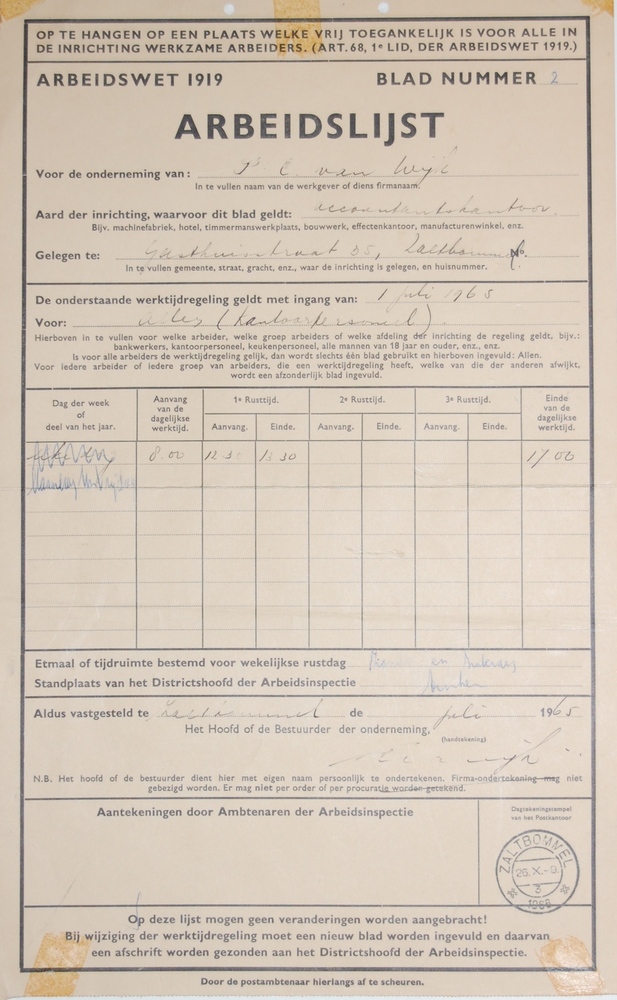 OP TE HANGEN OP EEN PLAATS WELKE VRIJ TOEGANKELIJK IS VOOR ALLE IN
DE INRICHTING WERKZAME ARBEIDERS. (ART. 68, 1e LID, DER ARBEIDSWET 1919.)
ARBEIDSWET 1919 BLAD NUMMER 2
ARBEIDSLIJST
Voor de onderneming van: P. C. van Wijk
In te vullen naam van de werkgever of diens firmanaam.
Aard der inrichting, waarvoor dit blad geldt: accountantskantoor.
Bijv. machinefabriek, hotel, timmermanswerkplaats, bouwwerk, effectenkantoor, manufacturenwinkel, enz.
Gelegen te: Gasthuisstraat 35, Zaltbommel No.
In te vullen gemeente, straat, gracht, enz., waar de inrichting is gelegen, en huisnummer.
De onderstaande werktijdregeling geldt met ingang van: 1 juli 1965
Voor: alles (kantoorpersoneel)
Hierboven in te vullen voor welke arbeider, welke groep arbeiders of welke afdeling der inrichting de regeling geldt, bijv.:
bankwerkers, kantoorpersoneel, keukenpersoneel, alle mannen van 18 jaar en ouder, enz., enz.
Is voor alle arbeiders de werktijdregeling gelijk, dan wordt slechts één blad gebruikt en hierboven ingevuld: Allen.
Voor iedere arbeider of iedere groep van arbeiders, die een werktijdregeling heeft, welke van die der anderen afwijkt,
wordt een afzonderlijk blad ingevuld.
Dag der week of deel van het jaar.
Aanvang van de dagelijkse werktijd.
1e Rusttijd. 2e Rusttijd. 3e Rusttijd.
Aanvang. Einde. Aanvang. Einde. Aanvang. Einde.
Einde van de dagelijkse werktijd.
8.00 12 30 13 30 17 00
Maandag t/m Vrijdag
Etmaal of tijdruimte bestemd voor wekelijkse rustdag
Standplaats van het Districtshoofd der Arbeidsinspectie
Aldus vastgesteld te Zaltbommel de juli 1965
Het Hoofd of de Bestuurder der onderneming,
(handtekening)
N.B. Het hoofd of de bestuurder dient hier met eigen naam persoonlijk te ondertekenen. Firma-ondertekening mag niet
gebezigd worden. Er mag niet per order of per procuratie worden getekend.
Aantekeningen door Ambtenaren der Arbeidsinspectie
Dagtekeningstempel
van het Postkantoor
ZALTBOMMEL
26.X.-9.
3
Op deze lijst mogen geen veranderingen worden aangebracht!
Bij wijziging der werktijdregeling moet een nieuw blad worden ingevuld en daarvan
een afschrift worden gezonden aan het Districtshoofd der Arbeidsinspectie.
Door de postambtenaar hierlangs af te scheuren.